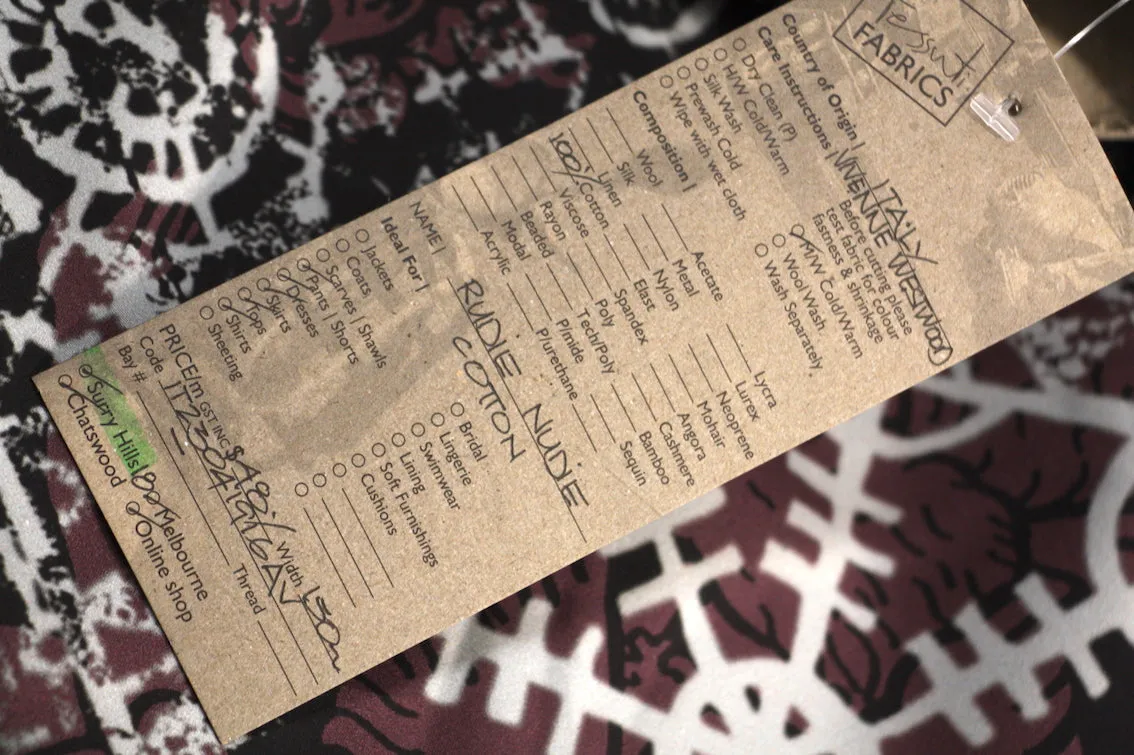 Tessuti
FABRICS
Country of Origin | ITALY
VIVIENNE WESTWOOD
Care Instructions | Before cutting please
test fabric for colour
fastness & shrinkage
Dry Clean (P)
H/W Cold/Warm
Silk Wash
Prewash Cold
Wipe with wet cloth
M/W Cold/Warm
Wool Wash
Wash Separately
Composition |
Wool
Silk
Linen
100% Cotton
Viscose
Rayon
Beaded
Modal
Acrylic
Acetate
Metal
Nylon
Elast
Spandex
Poly
Tech/Poly
P/mide
P/urethane
Lycra
Lurex
Neoprene
Mohair
Angora
Cashmere
Bamboo
Sequin
NAME | RUDIE NUDIE
COTTON
Ideal For |
Jackets
Coats
Scarves | Shawls
Pants | Shorts
Dresses
Skirts
Tops
Shirts
Sheeting
Bridal
Lingerie
Swimwear
Lining
Soft Furnishings
Cushions
PRICE/m GST INC $48 Width 150cm
Code
Bay # Thread
Surry Hills Melbourne
Chatswood Online shop